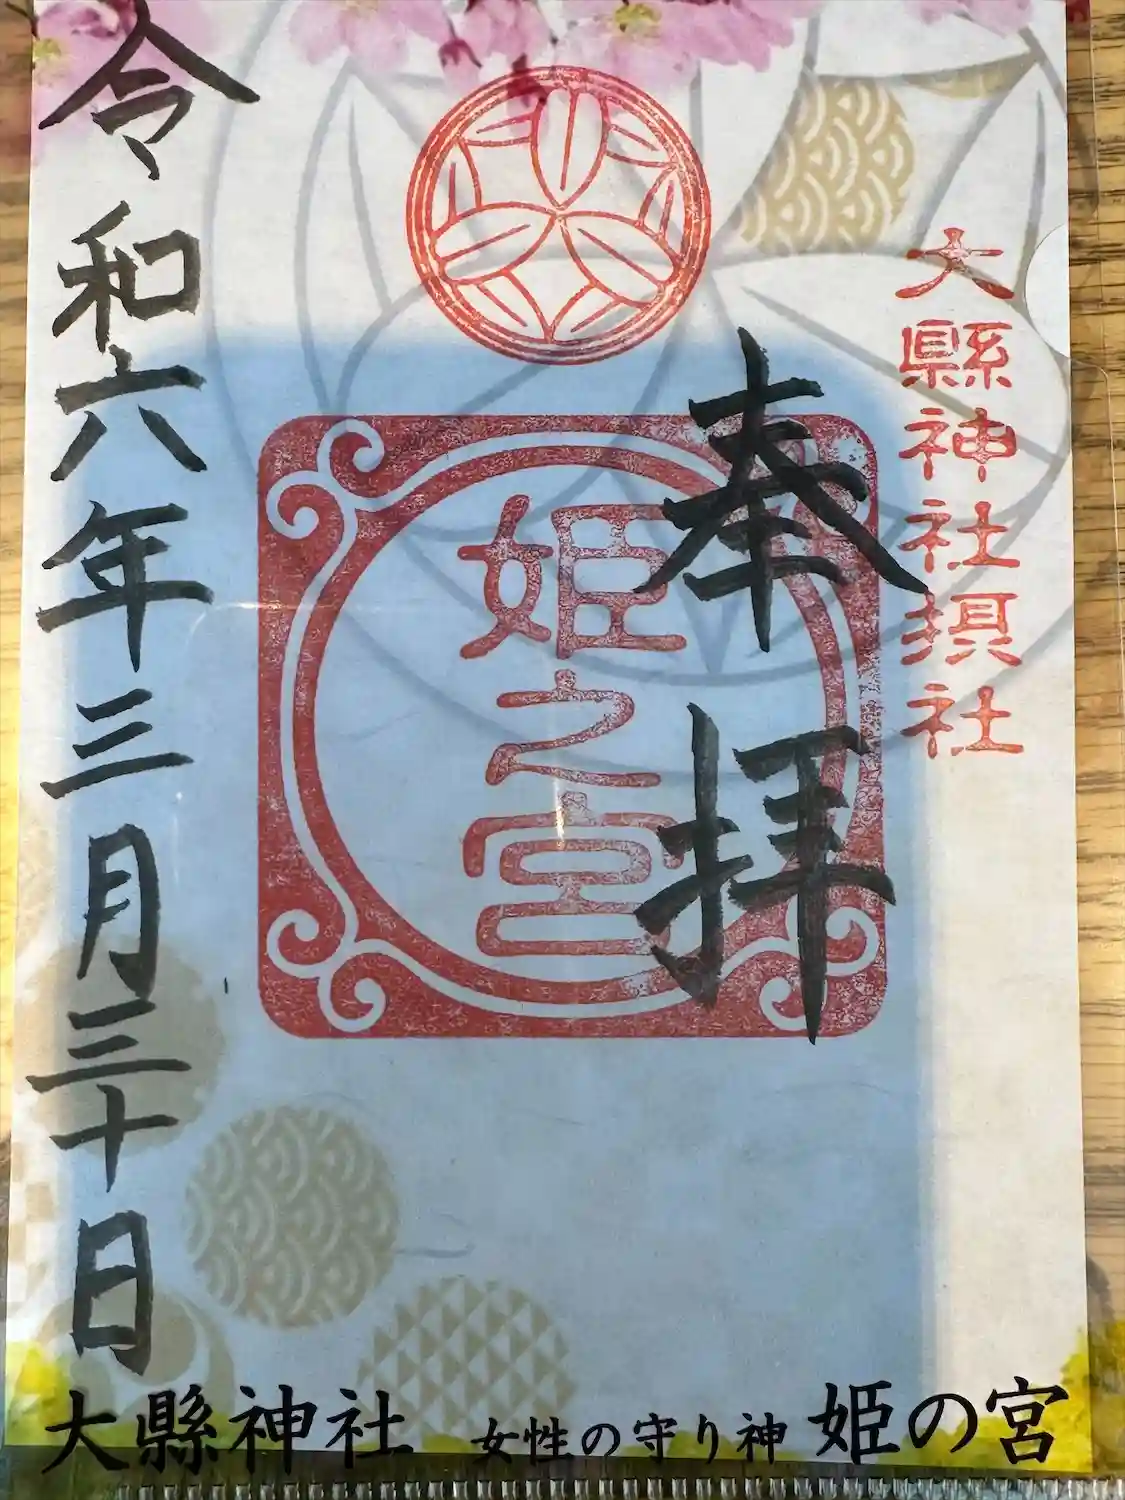 大縣神社摂社
奉拝
姫之宮
令和六年三月三十日
大縣神社 女性の守り神 姫の宮